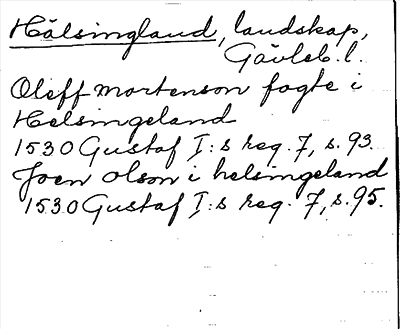 Hälsingland, landskap,
Gävleb. l.
Oleff mortenson fogte i
Helsingeland
1530 Gustaf I:s reg. 7, s. 93.
Joen olson i helsingeland
1530 Gustaf I:s reg. 7, s. 95.